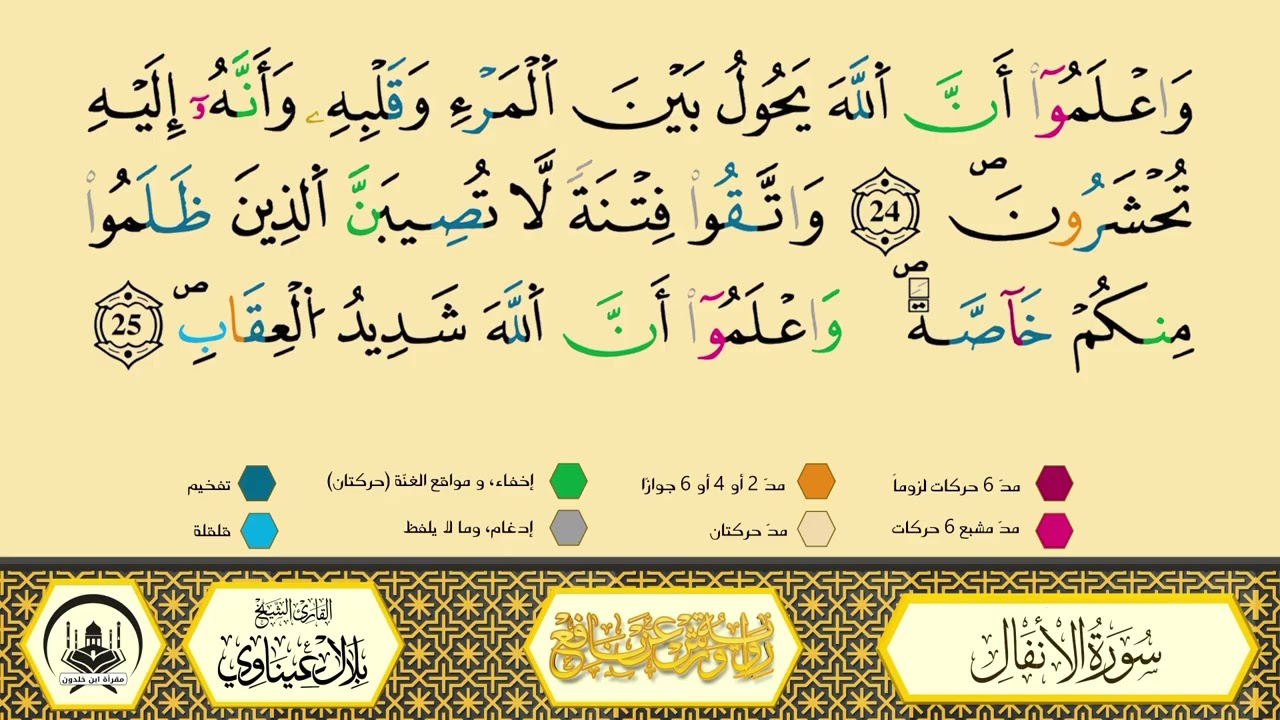 وَاعْلَمُوٓا۟ أَنَّ اَ۬للَّهَ يَحُولُ بَيْنَ اَ۬لْمَرْءِ وَقَلْبِهِۦ وَأَنَّهُۥٓ إِلَيْهِ
تُحْشَرُونَۖ 24 وَاتَّقُوا۟ فِتْنَةٗ لَّا تُصِيبَنَّ اَ۬لذِينَ ظَلَمُوا۟
مِنكُمْ خَآصَّةٗۖ وَاعْلَمُوٓا۟ أَنَّ اَ۬للَّهَ شَدِيدُ اُ۬لْعِقَابِۖ 25
مدّ 6 حركات لزوماً مدّ 2 أو 4 أو 6 جوازًا إخفاء، و مواقع الغنّة (حركتان) تفخيم
مدّ مشبع 6 حركات مدّ حركتان إدغام، وما لا يلفظ قلقلة
سُورَةُ الأَنفَالِ
رواية ورش عن نافع
القارئ الشيخ
بلال عيناوي
مقرأة ابن خلدون